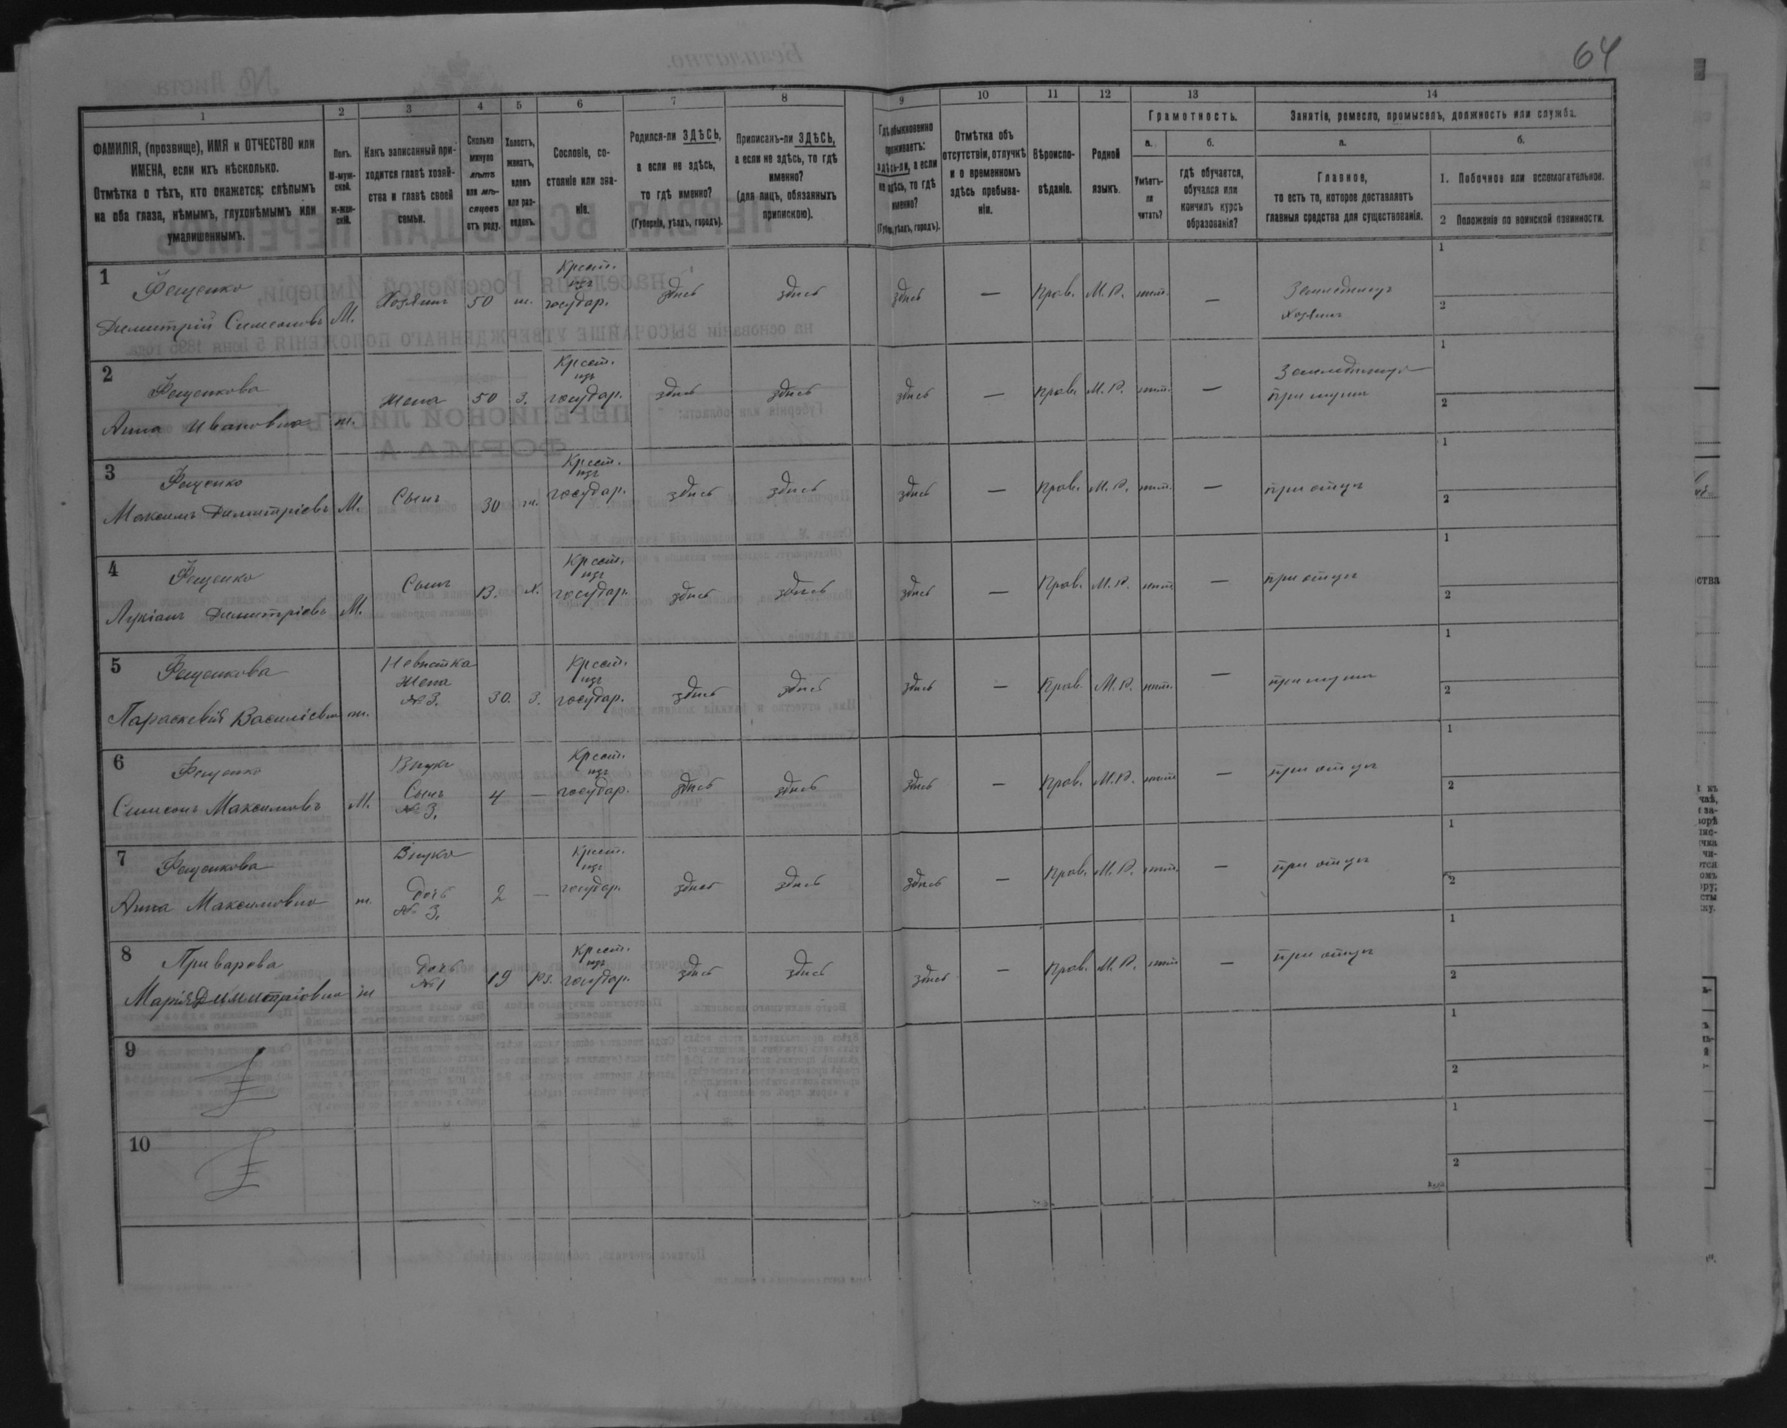 64
1
2
3
4
5
6
7
8
9
10
11
12
13
14
ФАМИЛІЯ, (прозвище), ИМЯ и ОТЧЕСТВО или
ИМЕНА, если ихъ нѣсколько.
Отмѣтка о тѣхъ, кто окажется: слѣпымъ
на оба глаза, нѣмымъ, глухонѣмымъ или
умалишеннымъ.
Полъ.
М-муж-
ской.
Ж-жен-
скій.
Какъ записанный при-
ходится главѣ хозяй-
ства и главѣ своей
семьи.
Сколько
минуло
лѣтъ
или мѣ-
сяцевъ
отъ роду.
Холостъ,
женатъ,
вдовъ
или раз-
веденъ.
Сословіе, со-
стояніе или зва-
ніе.
Родился-ли ЗДѢСЬ,
а если не здѣсь,
то гдѣ именно?
(Губернія, уѣздъ, городъ).
Приписанъ-ли ЗДѢСЬ,
а если не здѣсь, то гдѣ
именно?
(для лицъ, обязанныхъ
припискою).
Гдѣ обыкновенно
проживаетъ:
здѣсь-ли, а если
не здѣсь, то гдѣ
именно?
(Губер., уѣздъ, городъ).
Отмѣтка объ
отсутствіи, отлучкѣ
и о временномъ
здѣсь пребыва-
ніи.
Вѣроиспо-
вѣданіе.
Родной
языкъ.
Грамотность.
а.
Умѣетъ-
ли
читать?
б.
гдѣ обучается,
обучался или
кончилъ курсъ
образованія?
Занятіе, ремесло, промыселъ, должность или служба.
а.
Главное,
то есть то, которое доставляетъ
главныя средства для существованія.
б.
1. Побочное или вспомогательное.
2 Положеніе по воинской повинности.
1 Фещенко
Димитрій Симеоновъ М. Хозяинъ 50 ж. Крест. изъ государ. здѣсь здѣсь здѣсь — Прав. М. Р. нѣт. — Земледѣлецъ хозяинъ 1 2
2 Фещенкова
Анна Ивановна ж. Жена 50 з. Крест. изъ государ. здѣсь здѣсь здѣсь — Прав. М. Р. нѣт. — при мужѣ 1 2
3 Фещенко
Максимъ Димитріевъ М. Сынъ 30 ж. Крест. изъ государ. здѣсь здѣсь здѣсь — Прав. М. Р. нѣт. — при отцѣ 1 2
4 Фещенко
Лукіанъ Димитріевъ М. Сынъ 13. х. Крест. изъ государ. здѣсь здѣсь здѣсь — Прав. М. Р. нѣт — при отцѣ 1 2
5 Фещенкова
Параскевія Василіевна ж. Невѣстка Жена № 3. 30. з. Крест. изъ государ. здѣсь здѣсь здѣсь — Прав. М. Р. нѣт. — при мужѣ 1 2
6 Фещенко
Симеонъ Максимовъ М. Внукъ Сынъ № 3. 4 — Крест. изъ государ. здѣсь здѣсь здѣсь — Прав. М. Р. нѣт — при отцѣ 1 2
7 Фещенкова
Анна Максимовна ж. Внука дочь № 3. 2 — Крест. изъ государ. здѣсь здѣсь здѣсь — Прав. М. Р. нѣт. — при отцѣ 1 2
8 Приварова
Марія Димитріовна ж дочь №1 19 рз. Крест. изъ государ. здѣсь здѣсь здѣсь — Прав. М. Р. нѣт — при отцѣ 1 2
9 1 2
10 1 2